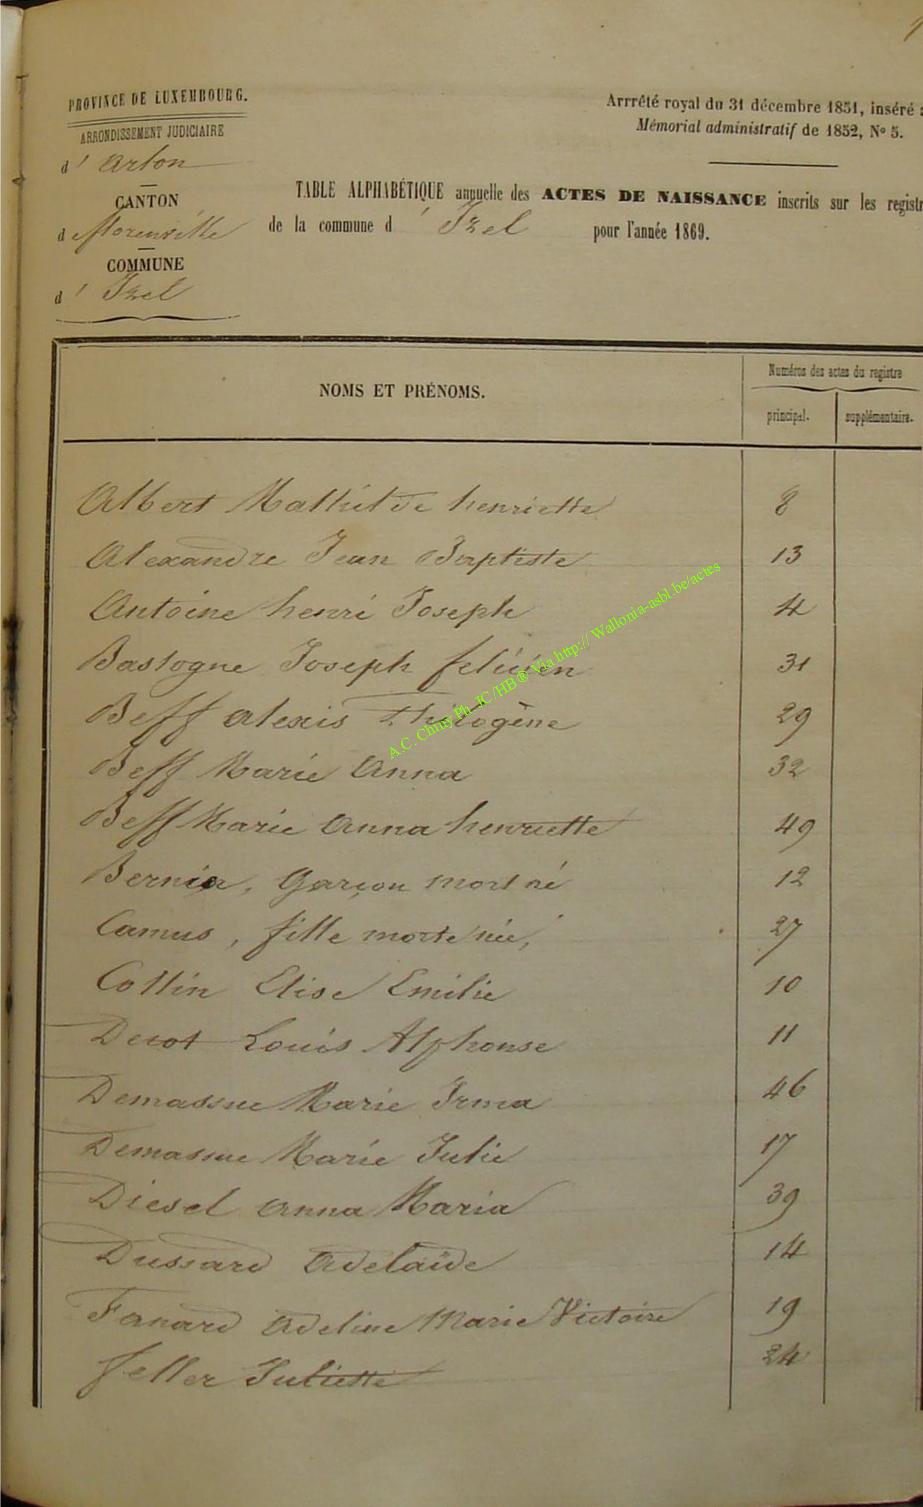 PROVINCE DE LUXEMBOURG.
ARRONDISSEMENT JUDICIAIRE
d' Arlon
CANTON
de Florenville
COMMUNE
d' Izel
Arrrêté royal du 31 décembre 1851, inséré
Mémorial administratif de 1852, No 5.
TABLE ALPHABÉTIQUE annuelle des ACTES DE NAISSANCE inscrits sur les registr
de la commune d' Izel pour l'année 1869.
NOMS ET PRÉNOMS.
Numéros des actes du registre
principal. supplémentaire.
Albert Mathilde henriette 8
Alexandre Jean Baptiste 13
Antoine henri Joseph 4
Bastogne Joseph félicien 31
Beff alexis Théogène 29
Beff Marie Anna 32
Beff Marie Anna henriette 49
Bernier, Garçon mort né 12
Camus, fille morte née, 27
Collin Elise Emilie 10
Decot Louis Alphonse 11
Demassue Marie Irma 46
Demassue Marie Julie 17
Diesel anna Maria 39
Dussard Adelaïde 14
Fanard Adeline Marie Victoire 19
feller Juliette 24
A.C. Chiny Ph. JC/HB® Via http:// Wallonia-asbl.be/actes